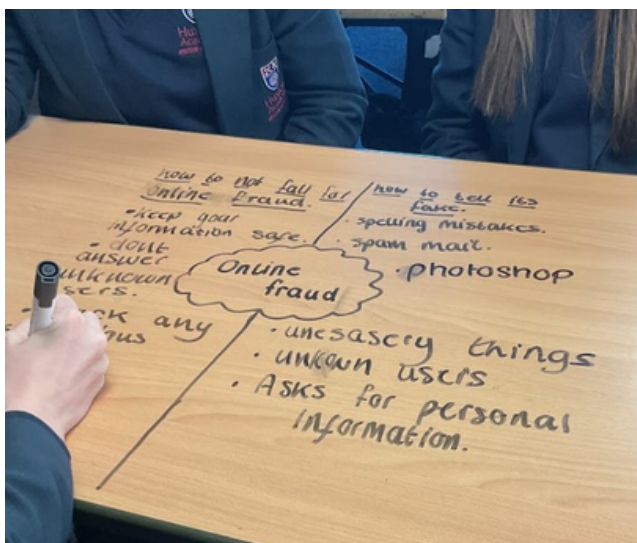 how to not fall for
online fraud.
• keep your
information safe.
• dont
answer
unknown
sers.
any
Online
fraud
how to tell its
fake.
• spelling mistakes.
• spam mail.
• photoshop
• unesasery things
• unkown users
• Asks for personal
information.